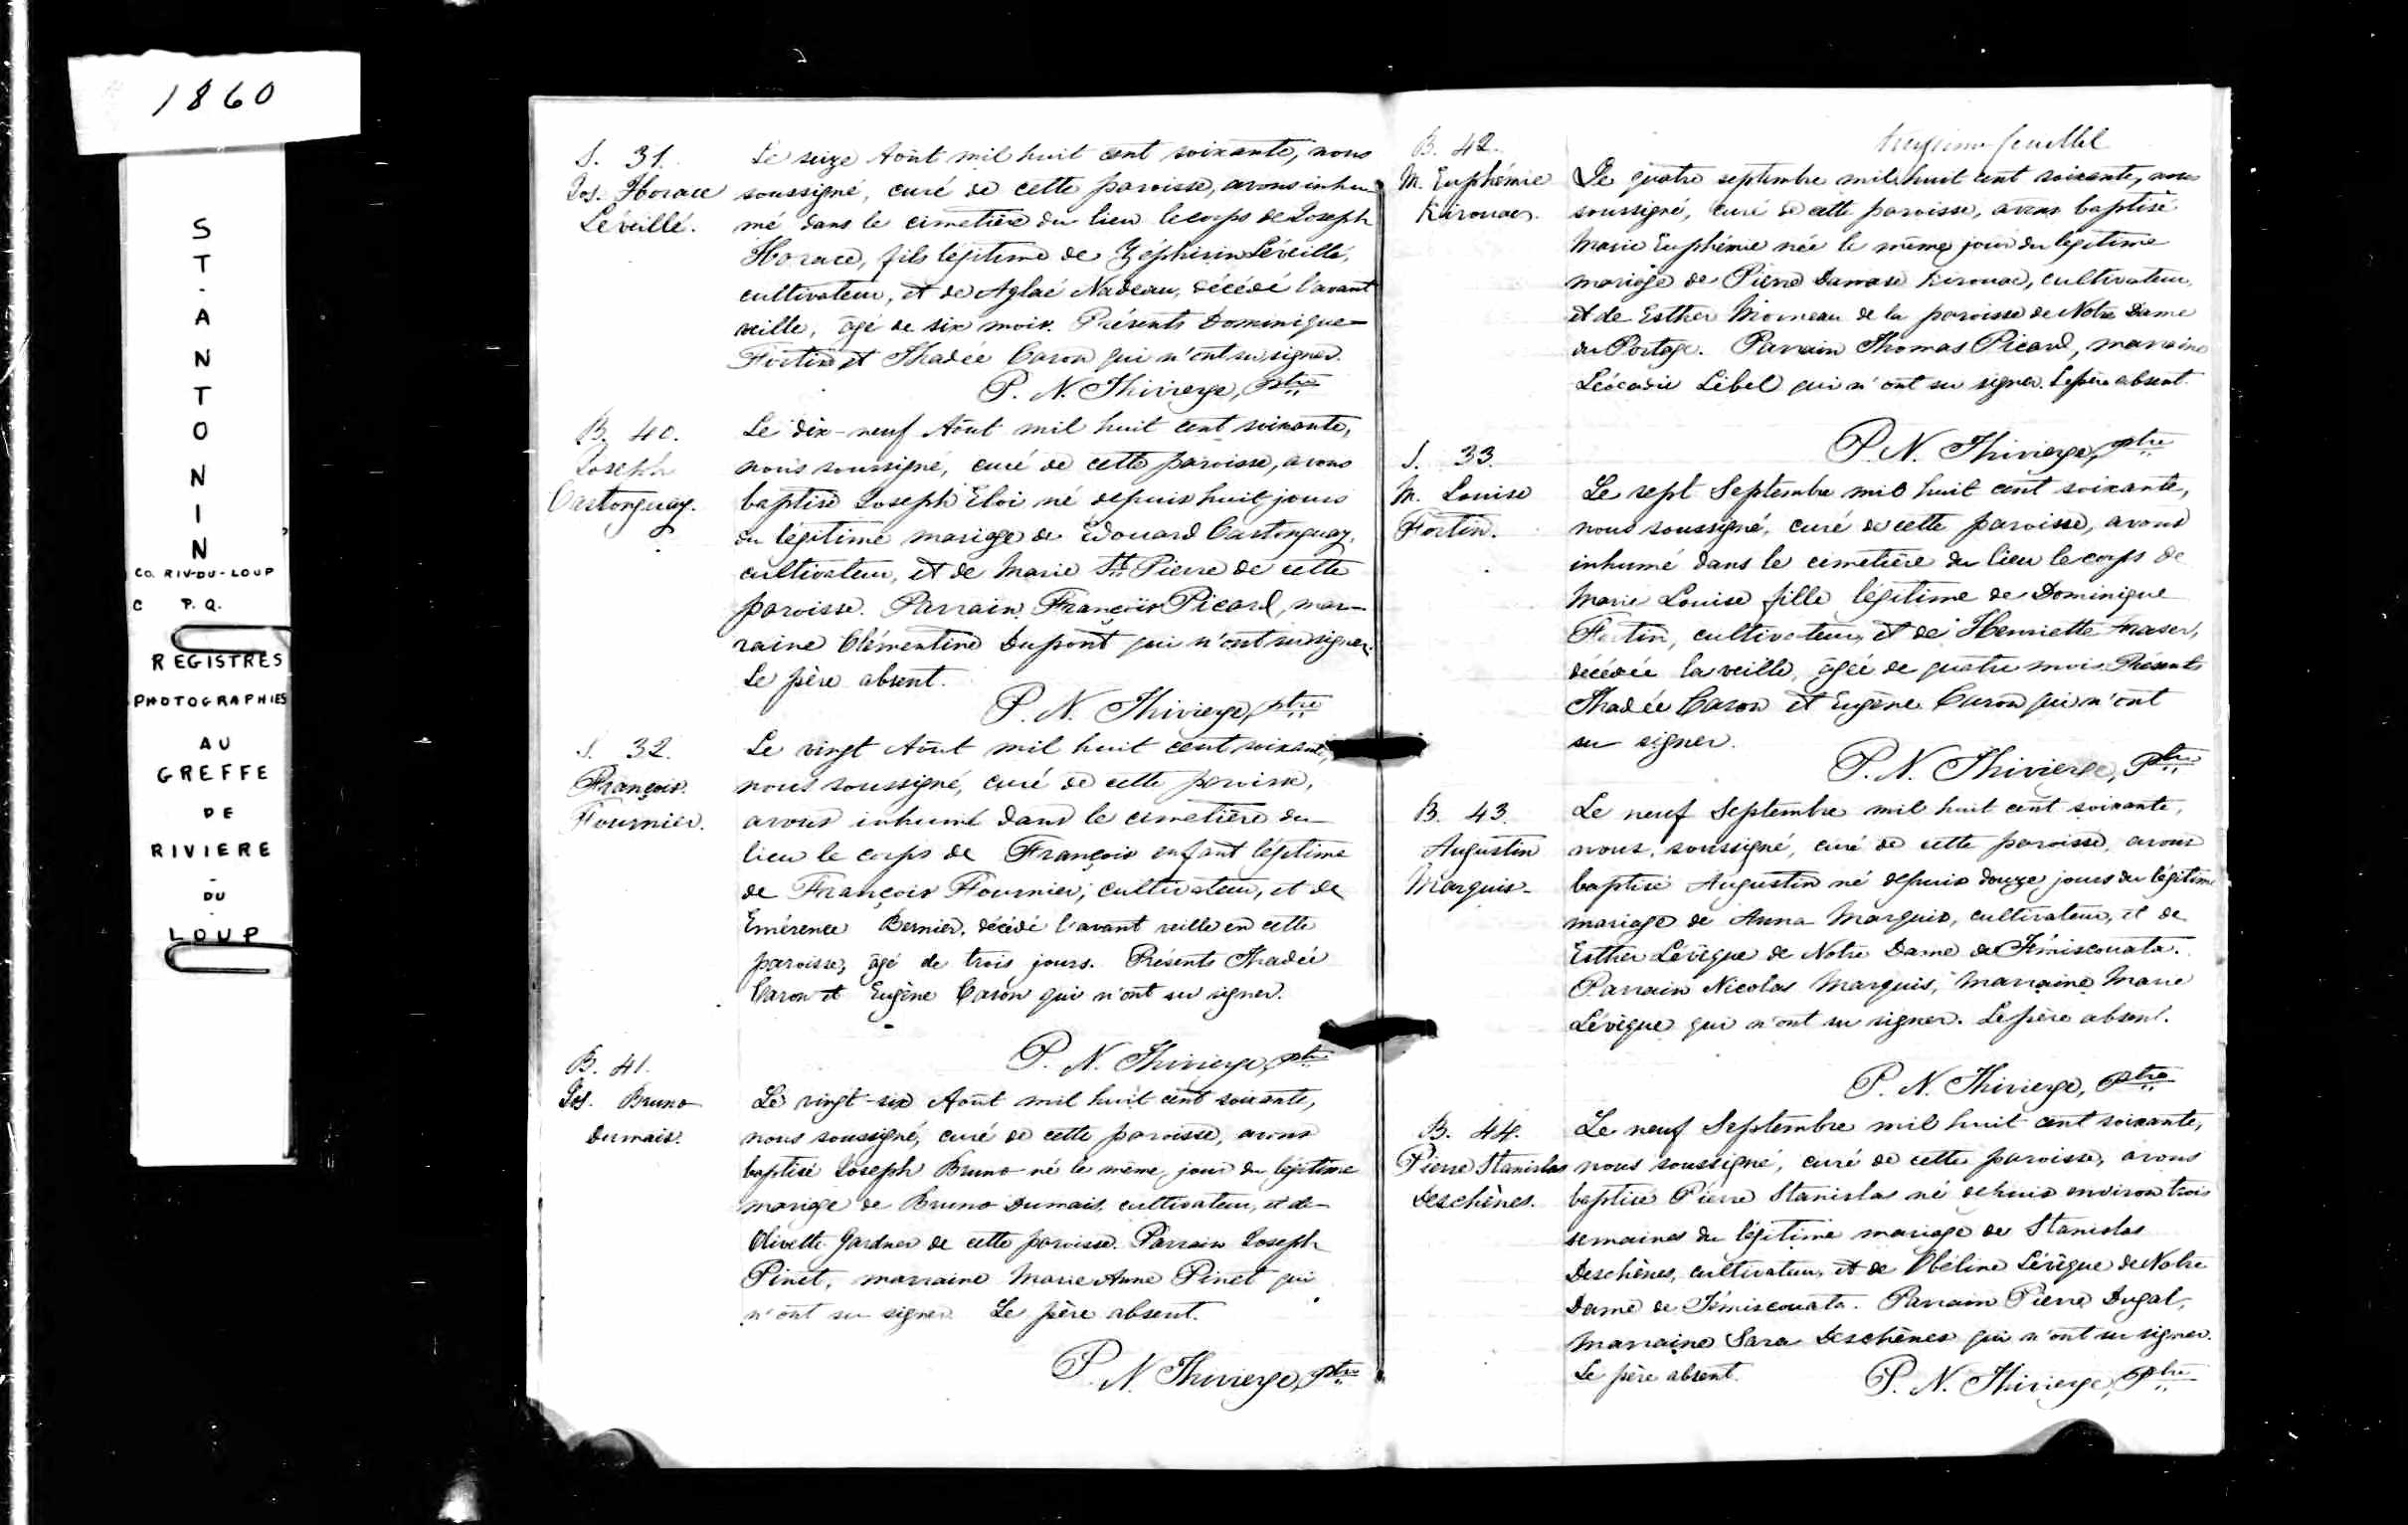 1860
ST. ANTONIN
CO. RIV-DU-LOUP
C P.Q.
REGISTRES
PHOTOGRAPHIES
AU
GREFFE
DE
RIVIERE
-
DU
-
LOUP
S. 31.
Jos. Horace
Léveillé.
Le seize Août mil huit cent soixante, nous
soussigné, curé de cette paroisse, avons inhu
mé dans le cimetière du lieu le corps de Joseph
Horace, fils légitime de Zéphirin Léveillé,
cultivateur, et de Aglaé Nadeau, décédé l'avant
veille, âgé de six mois. Présents Dominique
Fortin et Thadée Caron qui n'ont su signer.
P. N. Thivierge, Ptre
B. 40.
Joseph
Castonguay.
Le dix-neuf Août mil huit cent soixante,
nous soussigné, curé de cette paroisse, avons
baptisé Joseph Eloi né depuis huit jours
du légitime mariage de Edouard Castonguay,
cultivateur, et de Marie St Pierre de cette
paroisse. Parrain François Picard, mar-
raine Clémentine Dupont qui n'ont su signer.
Le père absent.
P. N. Thivierge, ptre
S. 32.
François
Fournier.
Le vingt Août mil huit cent soixante,
nous soussigné, curé de cette paroisse,
avons inhumé dans le cimetière du
lieu le corps de François enfant légitime
de François Fournier, cultivateur, et de
Emérence Bernier, décédé l'avant veille en cette
paroisse, âgé de trois jours. Présents Thadée
Caron et Eugène Caron qui n'ont su signer.
P. N. Thivierge, ptre
B. 41.
Jos. Bruno
Dumais.
Le vingt-six Août mil huit cent soixante,
nous soussigné, curé de cette paroisse, avons
baptisé Joseph Bruno né le même jour du légitime
mariage de Bruno Dumais, cultivateur, et de
Olivette Gardner de cette paroisse. Parrain Joseph
Pinet, marraine Marie Anne Pinet qui
n'ont su signer. Le père absent.
P. N. Thivierge, ptre
feuillet
B. 42.
M. Euphémie
Kirouac.
Le quatre septembre mil huit cent soixante, nous
soussigné, curé de cette paroisse, avons baptisé
Marie Euphémie née le même jour du légitime
mariage de Pierre Damase Kirouac, cultivateur,
et de Esther Morneau de la paroisse de Notre Dame
du Portage. Parrain Thomas Picard, marraine
Léocadie Lebel qui n'ont su signer. Le père absent.
P. N. Thivierge, ptre
S. 33.
M. Louise
Fortin.
Le sept Septembre mil huit cent soixante,
nous soussigné, curé de cette paroisse, avons
inhumé dans le cimetière du lieu le corps de
Marie Louise fille légitime de Dominique
Fortin, cultivateur, et de Henriette Fraser,
décédée la veille, âgée de quatre mois. Présents
Thadée Caron et Eugène Caron qui n'ont
su signer.
P. N. Thivierge, Ptre
B. 43.
Augustin
Marquis-
Le neuf Septembre mil huit cent soixante,
nous, soussigné, curé de cette paroisse, avons
baptisé Augustin né depuis douze jours du légitime
mariage de Anna Marquis, cultivateur, et de
Esther Lévêque de Notre Dame de Témiscouata.
Parrain Nicolas Marquis, marraine Marie
Lévêque qui n'ont su signer. Le père absent.
P. N. Thivierge, Ptre
B. 44.
Pierre Stanislas
Deschênes.
Le neuf Septembre mil huit cent soixante,
nous soussigné, curé de cette paroisse, avons
baptisé Pierre Stanislas né depuis environ trois
semaines du légitime mariage de Stanislas
Deschênes, cultivateur, et de Obéline Lévêque de Notre
Dame de Témiscouata. Parrain Pierre Dugal,
marraine Sara Deschênes qui n'ont su signer.
Le père absent.
P. N. Thivierge, Ptre